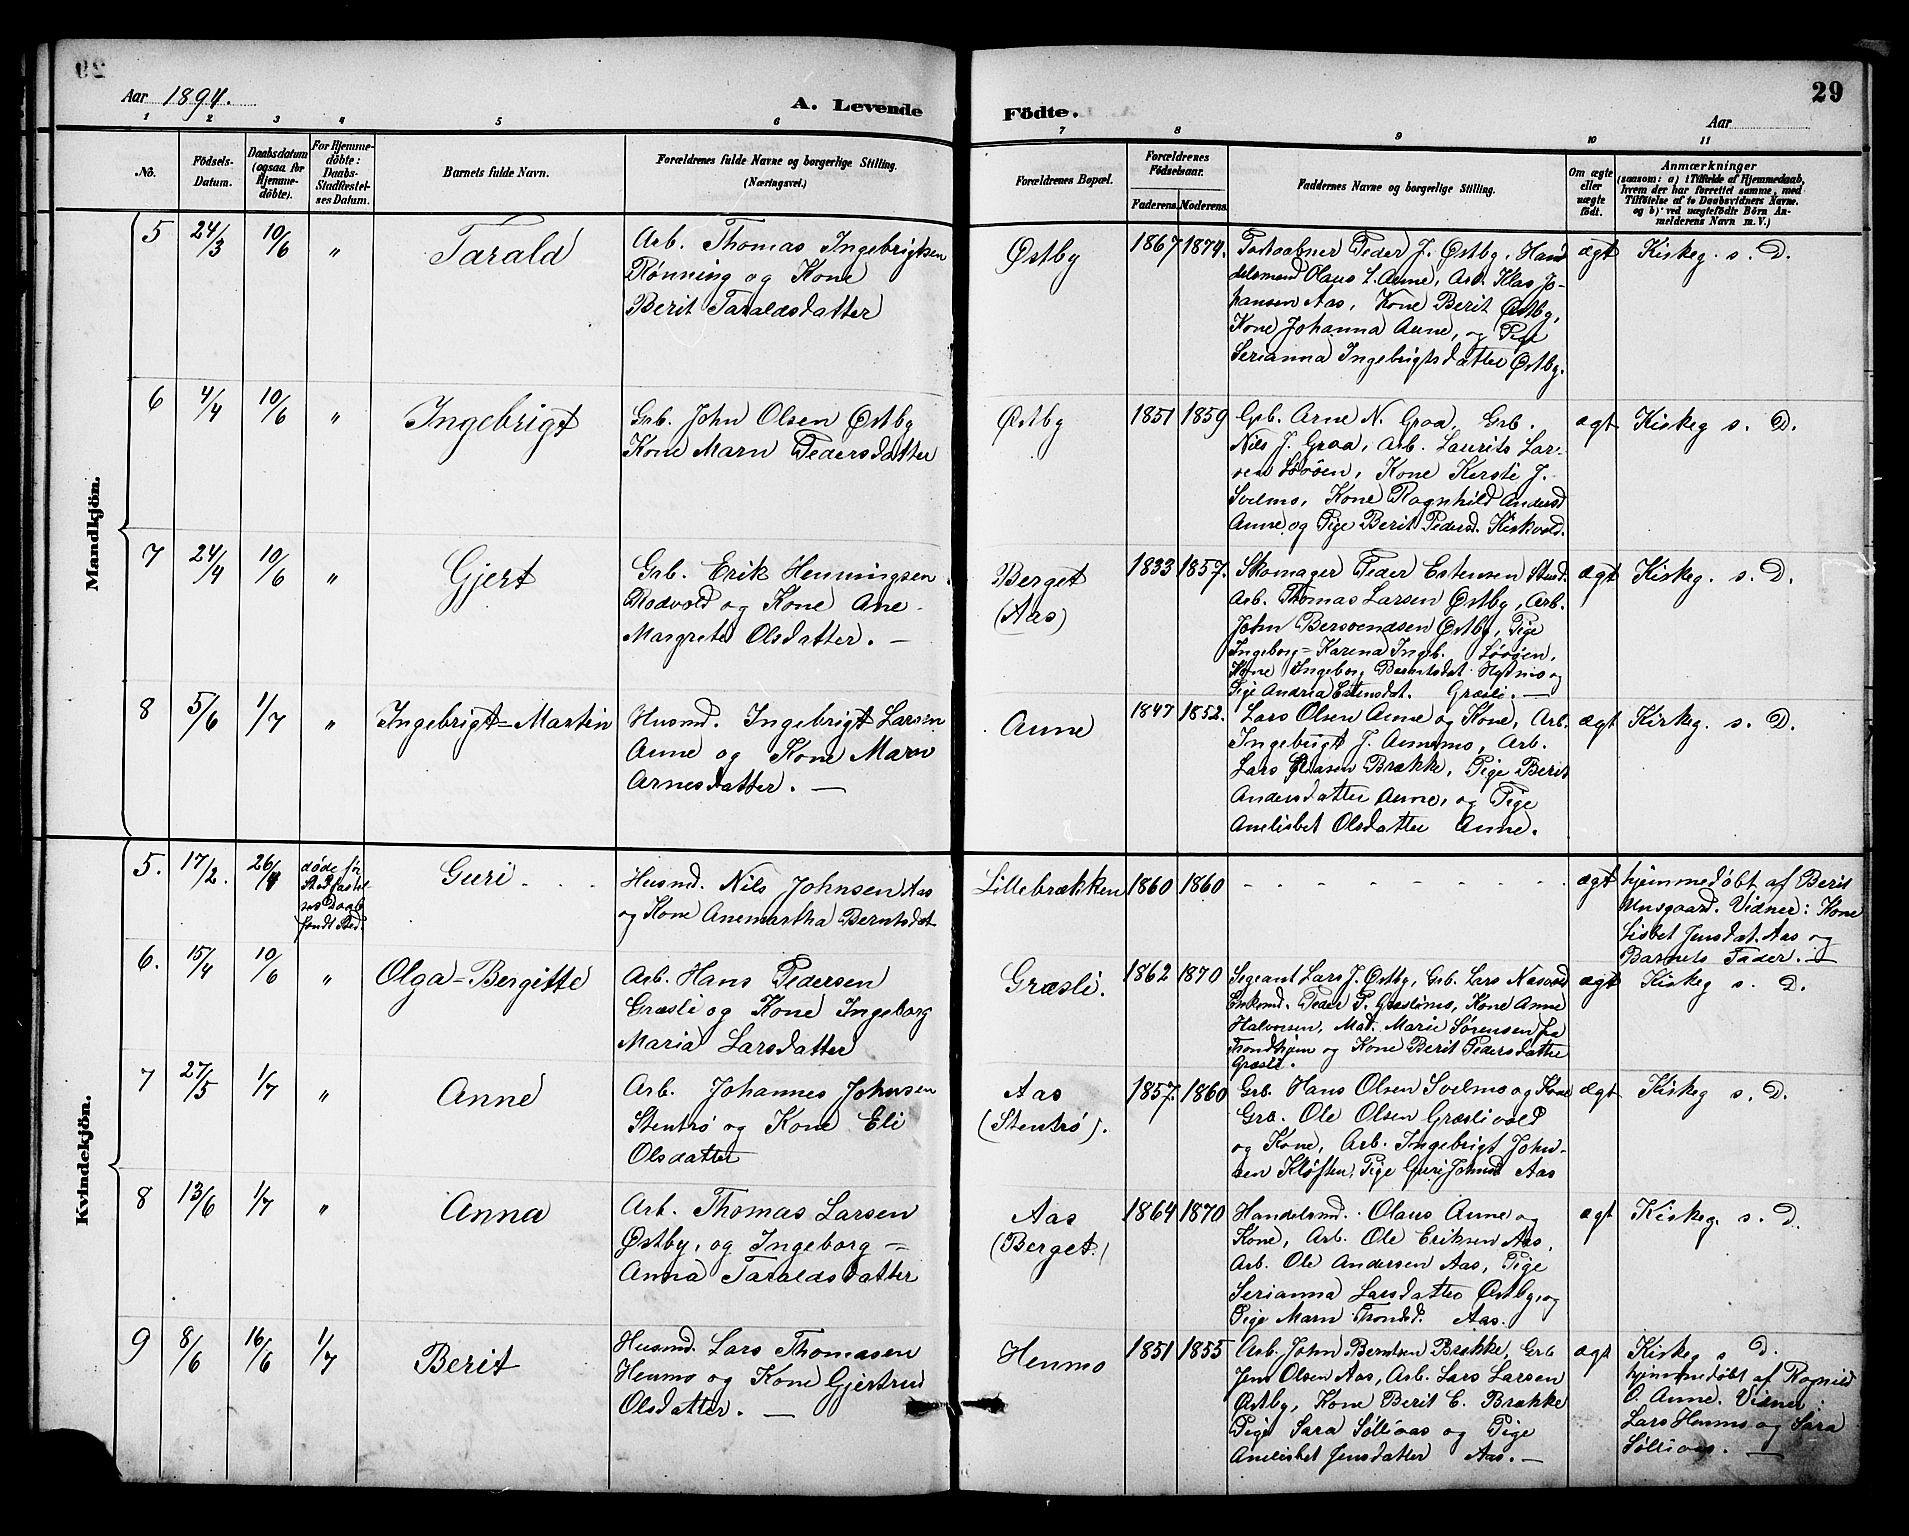 Aar 1894.
A. Levende
Födte.
Aar
29
1 2 3 4 5 6 7 8 9 10 11
No.
Födsels-Datum.
Daabsdatum (ogsaa for Hjemme-döbte).
For Hjemme-döbte: Daabs-Stadfæstel-ses Datum.
Barnets fulde Navn.
Forældrenes fulde Navne og borgerlige Stilling.
(Næringsvei.)
Forældrenes Bopæl.
Forældrenes Födselsaar.
Faderens.
Moderens.
Faddernes Navne og borgerlige Stilling.
Om ægte eller uægte födt.
Anmærkninger
(saasom: a) i Tilfælde af Hjemmedaab,
hvem der har forrettet samme, med
Tilföielse af to Daabsvidners Navne.
og b) ved uægtefödte Börn An-
melderens Navn m. V.)
Mandkjön.
5 24/3 10/6 " Tarald
Arb. Thomas Ingebrigtsen
Rønning og Kone
Berit Taraldsdatter
Østby 1867 1874.
Peder J. Østby, Han-
delsmand Olaus L. Aune, Arb. Klas Jo-
hansen Aas, Kone Berit Østby,
Kone Johanna Aune, og Pige
Serianna Ingebrigtsdatter Østby.
ægt Kirkeg. s. D.
6 4/4 10/6 " Ingebrigt
Grb. John Olsen Østby
Kone Marn Pedersdatter
Østby 1851 1859
Grb. Arne N. Groa, Grb.
Nils J. Groa, Arb. Laurits Lar-
sen Løvøen, Kone Kirsti J.
Svelmo, Kone Ragnhild Andersd
Aune og Pige Berit Pedersd. Kirkvold.
ægt Kirkeg s. D.
7 24/4 10/6 " Gjert
Grb. Erik Henningsen
Rodvold og Kone Ane-
Margrete Olsdatter. —
Berget
(Aas)
1833 1857.
Skomager Peder Estensen Stusd.
Arb. Thomas Larsen Østby, Arb.
John Bersvendsen Østby, Pige
Ingeborg=Karena Ingeb. Løvøen,
Kone Ingeborg Berntsdat. Hydmo og
Pige Andrea Estensdat. Græsli. —
ægt Kirkeg. s. D.
8 5/6 1/7 " Ingebrigt=Martin
Husmd. Ingebrigt Larsen
Aune og Kone Marn
Arnesdatter. —
Aune 1847 1852.
Lars Olsen Aune og Kone, Arb.
Ingebrigt J. Aunmo, Arb.
Lars Brække, Pige Berit
Andersdatter Aune, og Pige
Anelisbet Olsdatter Aune.
ægt Kirkeg. s. D.
Kvindekjön.
5. 17/2. 26/4
døde før
Stadfæstel-
ses Daab
fandt Sted.
Guri
Husmd. Nils Johnsen Aas
og Kone Anemartha Berntsdat
Lillebrækken 1860 1860
ægt
hjemmedøbt af Berit
Unsgaard. Vidner: Kone
Lisbet Jensdat. Aas og
Barnets Fader. —
6. 15/4 10/6 " Olga=Bergitte
Arb. Hans Pedersen
Græsli og Kone Ingeborg
Maria Larsdatter
Græsli. 1862 1870
Sergeant Lars J. Østby, Grb. Lars Næsvold
Enkemd. Peder P. Græslimo, Kone Anne
Halvorsen, Mad. Marie Sørensen fra
Trondhjem og Kone Berit Pedersdatter
Græsli.
ægt Kirkeg s. D.
7 27/5 1/7 " Anne
Arb. Johannes Johnsen
Stentrø og Kone Eli
Olsdatter
Aas
(Stentrø).
1857. 1860
Grb. Hans Olsen Svelmo og Kone
Grb. Ole Olsen Græslivold
og Kone, Arb. Ingebrigt John-
sen Kløften, Pige Guri Johnsd Aas
ægt Kirkeg s. D.
8 13/6 1/7 " Anna
Arb. Thomas Larsen
Østby, og Ingeborg=
Anna Taraldsdatter
Aas
(Berget.)
1864 1870
Handelsmd. Olaus Aune og
Kone, Arb. Ole Eriksen Aas,
Arb. Ole Andersen Aas, Pige
Serianna Larsdatter Østby, og
Pige Marn Trondsd. Aas.
ægt Kirkeg. s. D.
9 8/6 16/6 1/7 Berit
Husmd. Lars Thomasen
Henmo og Kone Gjertrud
Olsdatter. —
Henmo 1851 1855
Arb. John Berntsen Brække, Grb
Jens Olsen Aas, Arb. Lars Larsen
Østby, Kone Berit E. Brække
Pige Sara Sollivas og Pige
Anelisbet Jensdatter Aas. —
ægt
Kirkeg s D.
hjemmedøbt af Ragnild
O. Aune. Vidner:
Lars Henmo og Sara
Sollivas. —